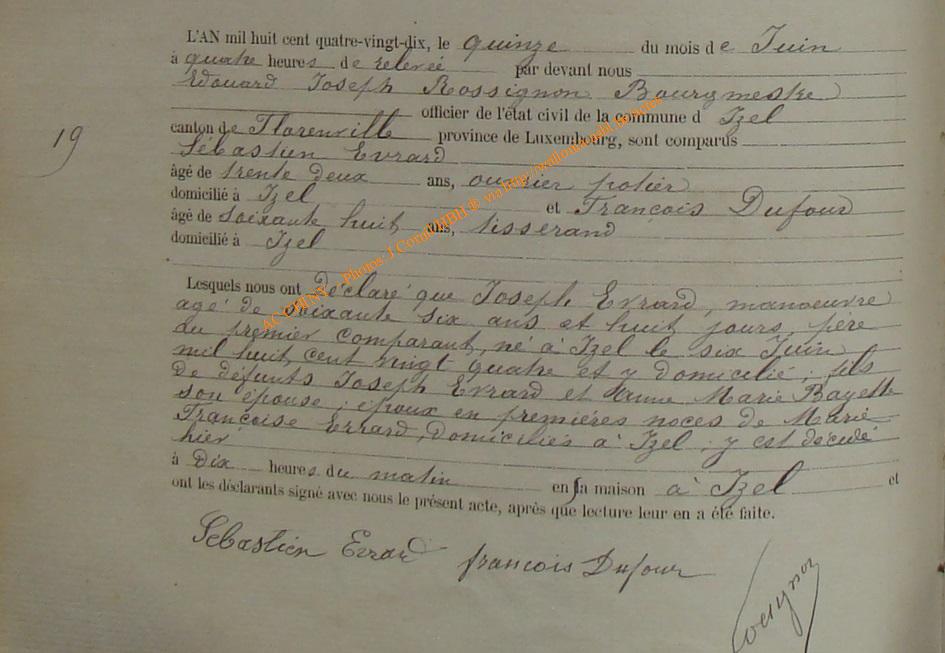 L'AN mil huit cent quatre-vingt-dix, le quinze du mois de Juin
à quatre heures de relevée par devant nous
Edouard Joseph Rossignon Bourgmestre
officier de l'état civil de la commune d Izel
19
canton de Florenville province de Luxembourg, sont comparus
Sébastien Evrard
âgé de trente deux ans, ouvrier potier
domicilié à Izel et François Dufour
âgé de soixante huit ans, tisserand
domicilié à Izel
Lesquels nous ont déclaré que Joseph Evrard, manoeuvre
agé de soixante six ans et huit jours, père
du premier comparant, né à Izel le six Juin
mil huit cent vingt quatre et y domicilié ; fils
de défunts Joseph Evrard et Anne Marie Bayette
son épouse ; époux en premières noces de Marie
Françoise Errard, domiciliés à Izel ; y est décédé
hier
à dix heures du matin en sa maison à Izel et
ont les déclarants signé avec nous le présent acte, après que lecture leur en a été faite.
Sébastien Evrard françois Dufour
AC CHINY - Photos: J Cornet